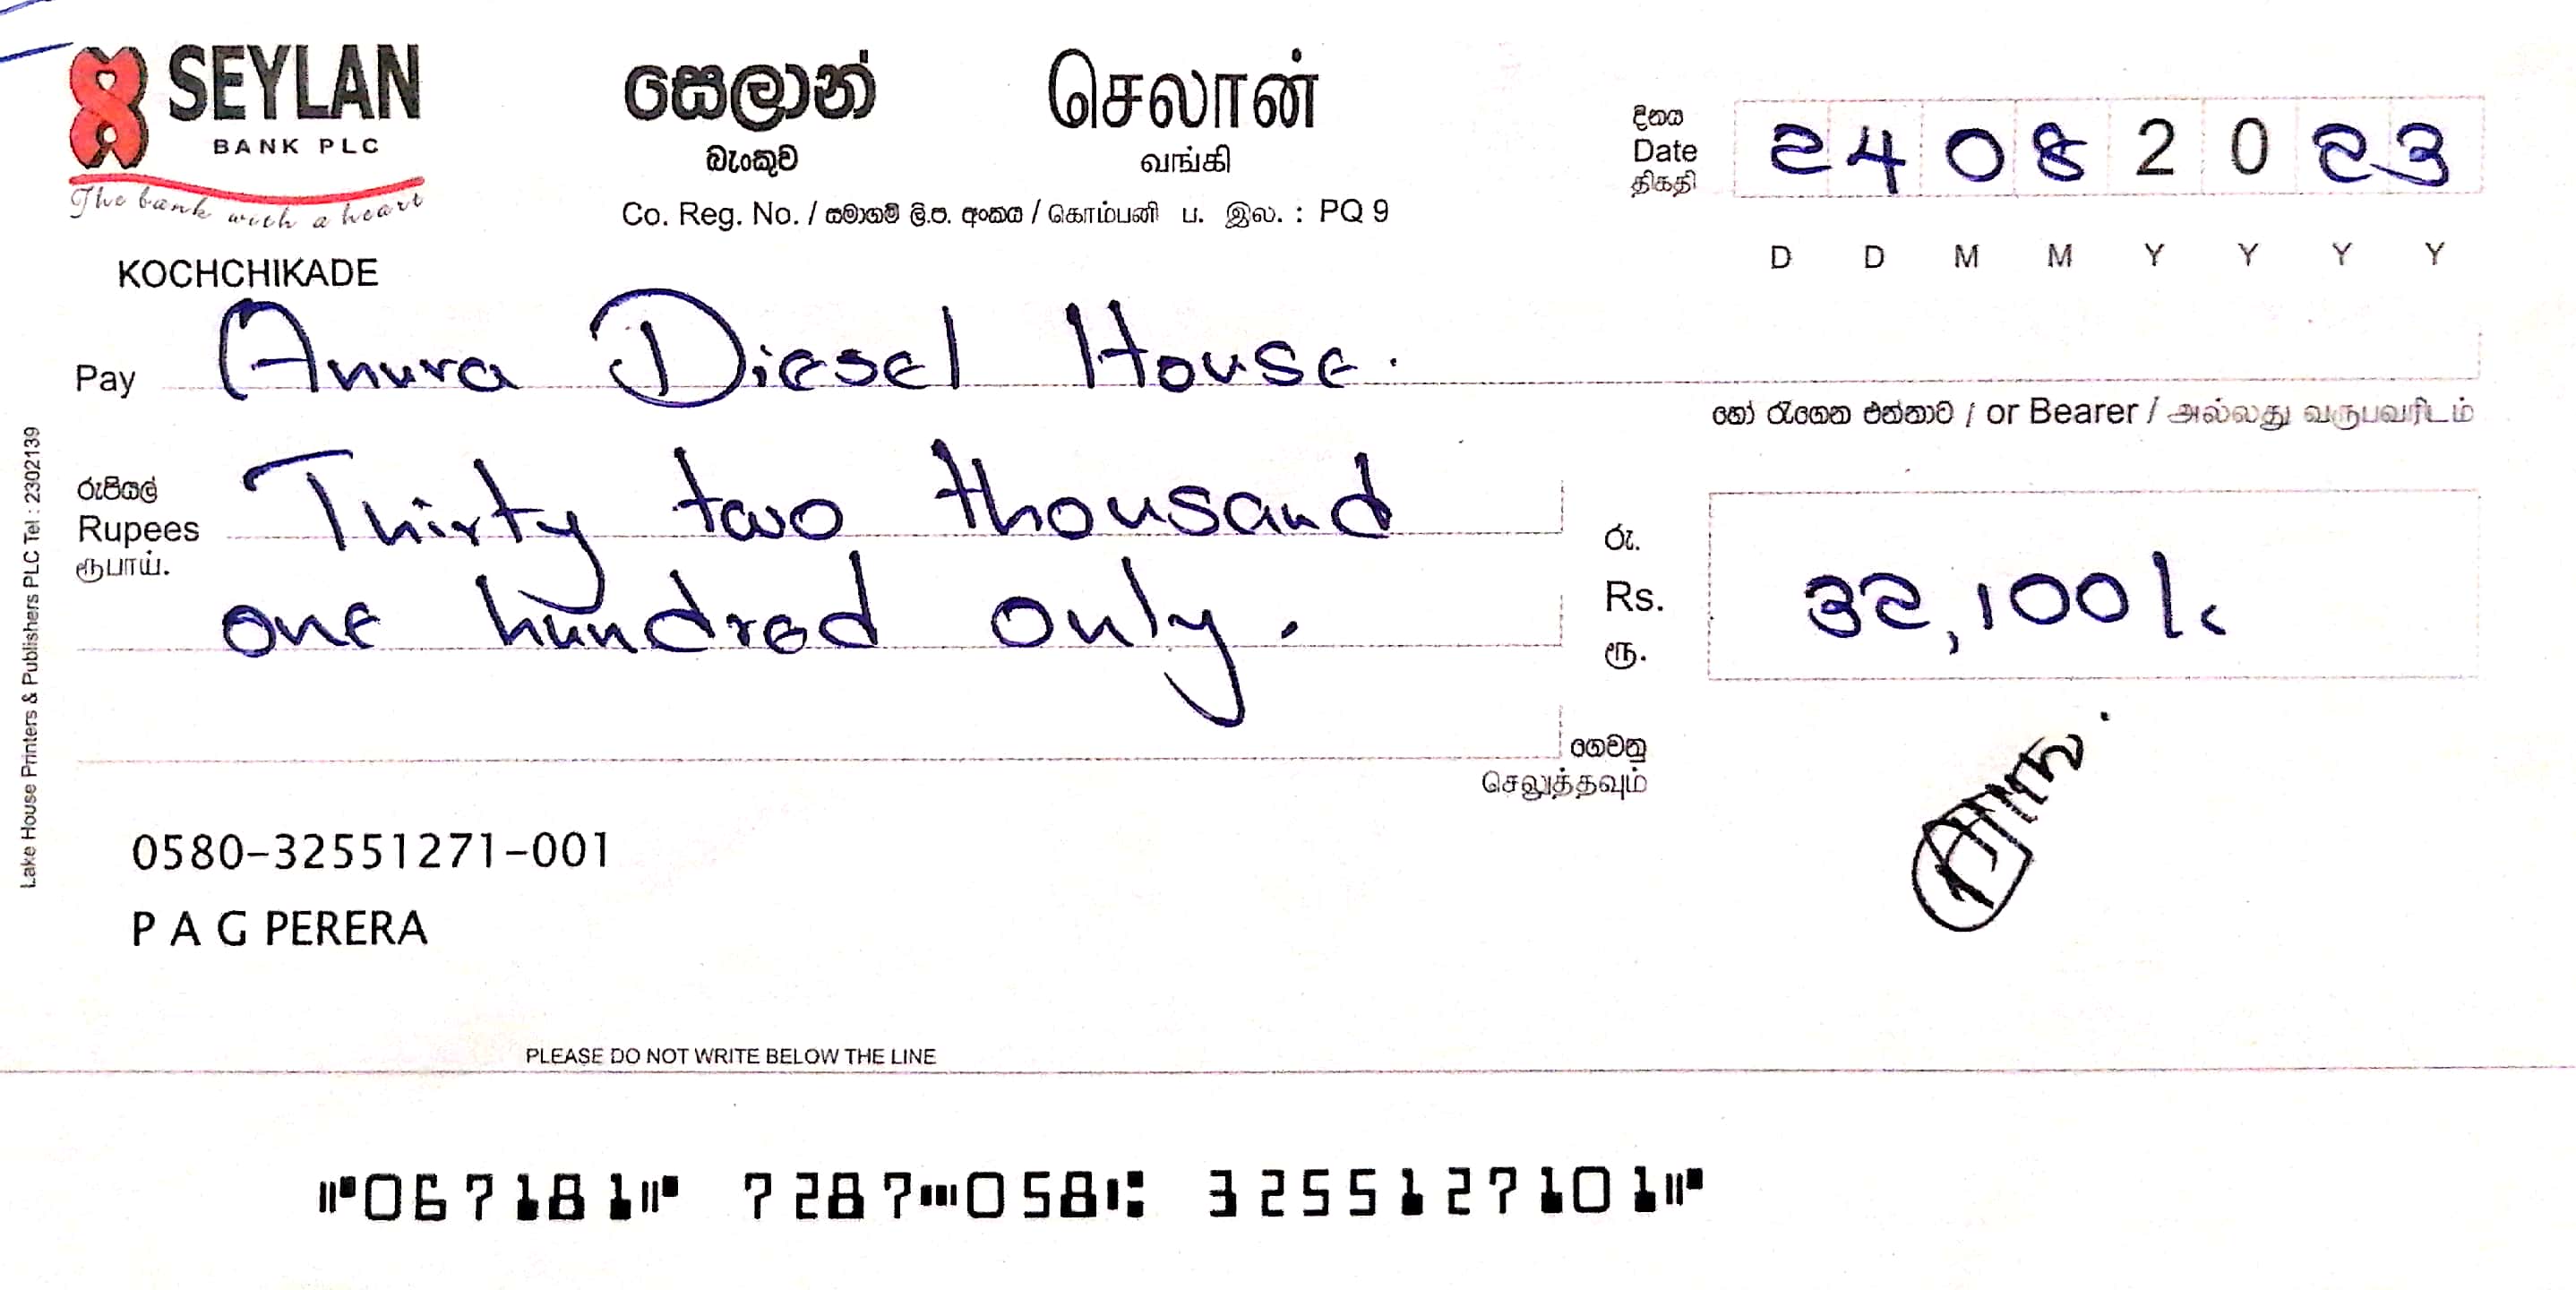 SEYLAN
BANK PLC
The bank with a heart
සෙලාන්
බැංකුව
செலான்
வங்கி
Co. Reg. No. / සමාගම් ලි.ප. අංකය / கொம்பனி ப. இல. : PQ 9
දිනය
Date
திகதி
2 4 0 8 2 0 2 3
D D M M Y Y Y Y
KOCHCHIKADE
Pay Anura Diesel House.
හෝ රැගෙන එන්නාට / or Bearer / அல்லது வருபவரிடம்
රුපියල්
Rupees
ரூபாய்.
Thirty two thousand
one hundred only.
රු.
Rs.
ரூ.
32,100/-
ගෙවනු
செலுத்தவும்
0580-32551271-001
P A G PERERA
Lake House Printers & Publishers PLC Tel : 2302139
PLEASE DO NOT WRITE BELOW THE LINE
⑈067181⑈ 7287⑉058⑆ 3255127101⑈